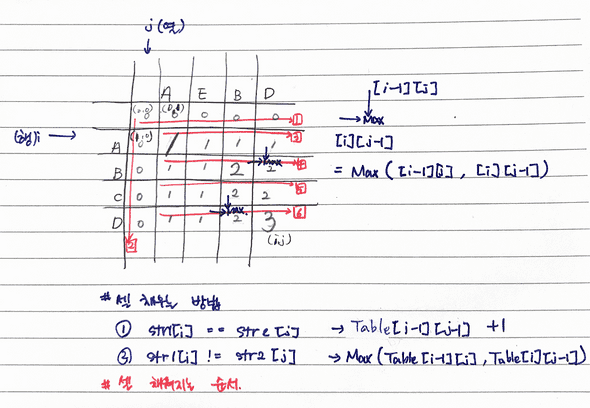 j (열)
A E B D
(0,0) (0,1)
0 0 0 0 0 1
(행)i (1,0)
A 0 1 1 1 1 3
B 0 1 1 2 2 Max 4
C 0 1 1 2 2 5
D 0 1 1 2 3 Max 6
2 (i,j)
[i-1][j]
Max
[i][j-1]
= Max ( [i-1][j], [i][j-1] )
# 셀 채우는 방법
① str1[i] == str2[j] → Table[i-1][j-1] +1
② str1[i] != str2[j] → Max(Table[i-1][j], Table[i][j-1])
# 셀 채워지는 순서.